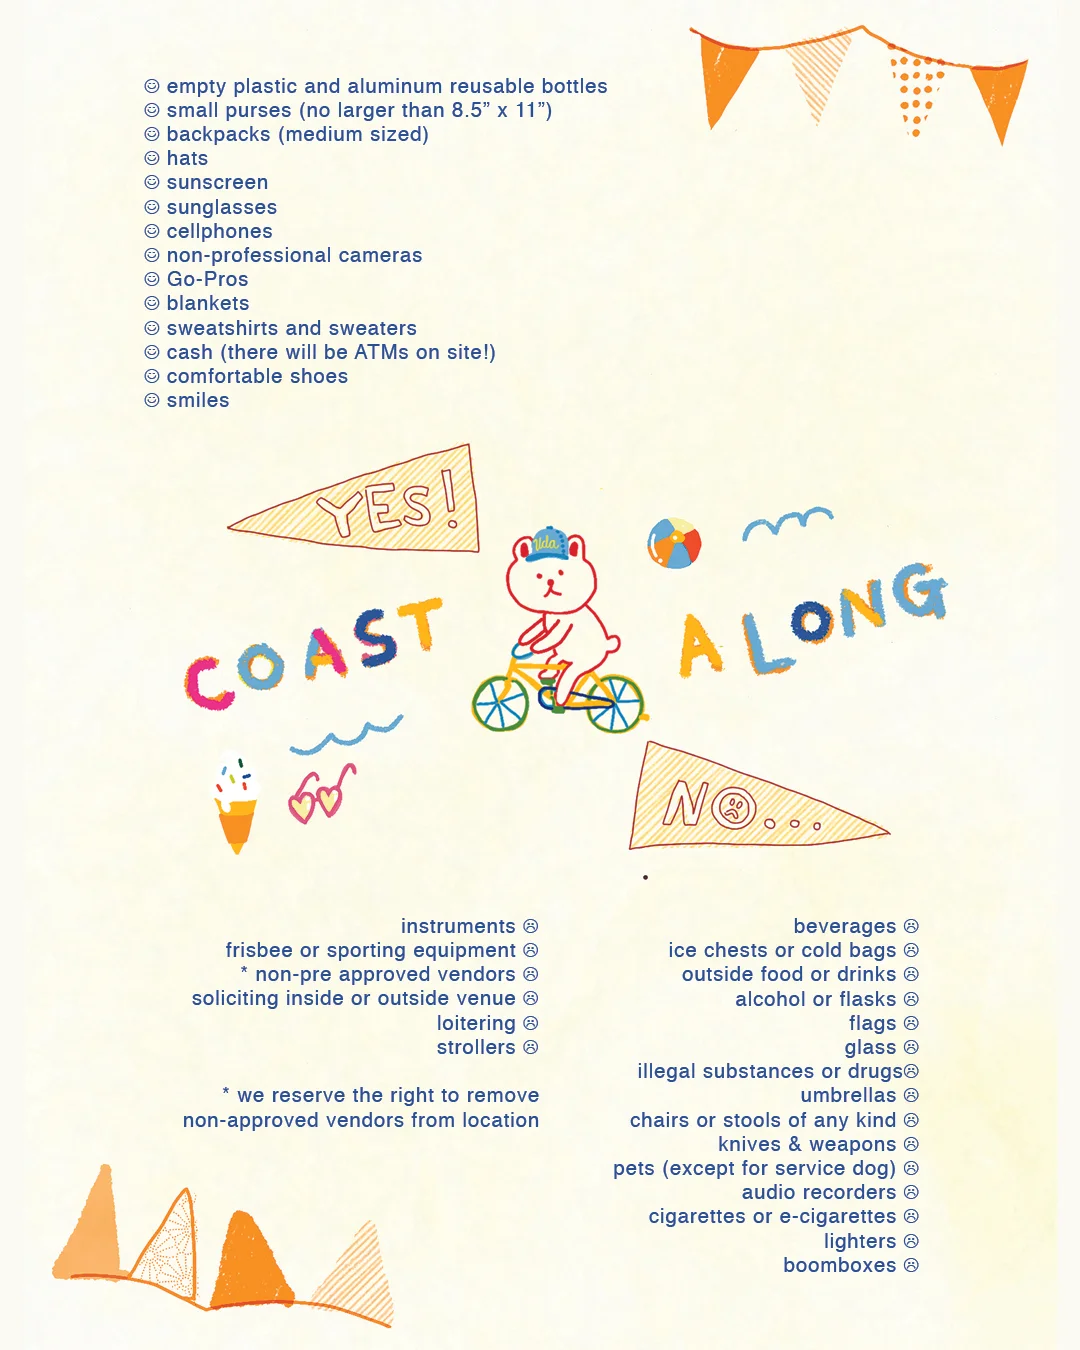 ☺ empty plastic and aluminum reusable bottles
☺ small purses (no larger than 8.5” x 11”)
☺ backpacks (medium sized)
☺ hats
☺ sunscreen
☺ sunglasses
☺ cellphones
☺ non-professional cameras
☺ Go-Pros
☺ blankets
☺ sweatshirts and sweaters
☺ cash (there will be ATMs on site!)
☺ comfortable shoes
☺ smiles
YES!
COAST ALONG
NO...
instruments ☹
frisbee or sporting equipment ☹
* non-pre approved vendors ☹
soliciting inside or outside venue ☹
loitering ☹
strollers ☹
* we reserve the right to remove
non-approved vendors from location
beverages ☹
ice chests or cold bags ☹
outside food or drinks ☹
alcohol or flasks ☹
flags ☹
glass ☹
illegal substances or drugs☹
umbrellas ☹
chairs or stools of any kind ☹
knives & weapons ☹
pets (except for service dog) ☹
audio recorders ☹
cigarettes or e-cigarettes ☹
lighters ☹
boomboxes ☹